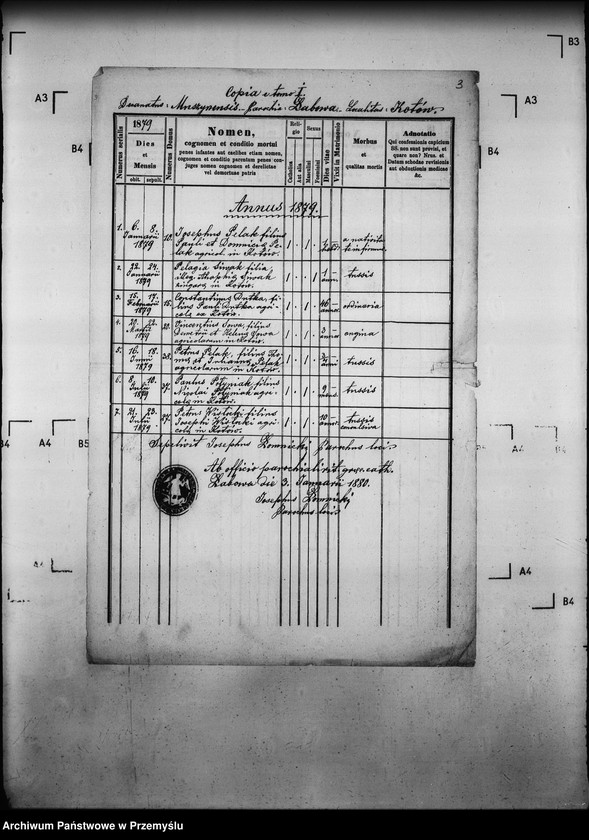 3
Copia e tomo I.
Decanatus: Muszynensis Parochia: Łabowa Localitas: Kotów.
Numerus serialis
1879
Dies
et
Mensis
obit. sepult.
Numerus Domus
Nomen,
cognomen et conditio mortui
penes infantes aut caelibes etiam nomen,
cognomen et conditio parentum penes con-
juges nomen cognomen et derelictae
vel demortuae patris
Reli-
gio
Catholica
Aut alia
Sexus
Masculini
Feminini
Dies vitae
Vixit in Matrimonio
Morbus
et
qualitas mortis
Adnotatio
Qui confessionis capicium
SS. non sunt provisi, et
quare non? Nrus. et
Datum schedae revisionis
aut obductionis medicae
&c.
Annus 1879.
1. 6. 8. Januarii 1879
Josephus Pelak filius
Pauli et Dominicae Pe-
lak agricol. in Kotów.
a nativita-
te infirmus
2. 22. 24. Januarii 1879
Pelagia Siwak filia
illeg. Siwak
in Kotów.
1 anni
tussis
3. 15. 17. Februarii 1879
15. Constantinus Dutka fi-
lius Pauli Dutka agri-
cola ex Kotów.
46
ordinaria
4. 20. 22. Martii 1879
20. filius
Demetrii et Helenae
agricolarum in Kotów.
3
angina
5. 16. 18. Junii 1879
Petrus Pelak, filius
et Pelak
agricolarum in Kotów.
tussis
6. 8. 10. Julii 1879
37. Paulus Polyniak filius
Nicolai Polyniak agri-
cola in Kotów.
9
tussis
7. 21. 23. Julii 1879
37. Petrus Wislocki filius
Josephi Wislocki agri-
cola in Kotów.
10
tussis
convulsiva
Sepelivit Josephus Łomnicky Parochus loci
Ab officio parochiali rit. graec. cath.
Łabowa die 3. Januarii 1880.
Josephus Łomnicky
Parochus loci
A3
B3
A3
B4
B4
B4
A4
A5
B5
B4
A4
A4
B4
Archiwum Państwowe w Przemyślu